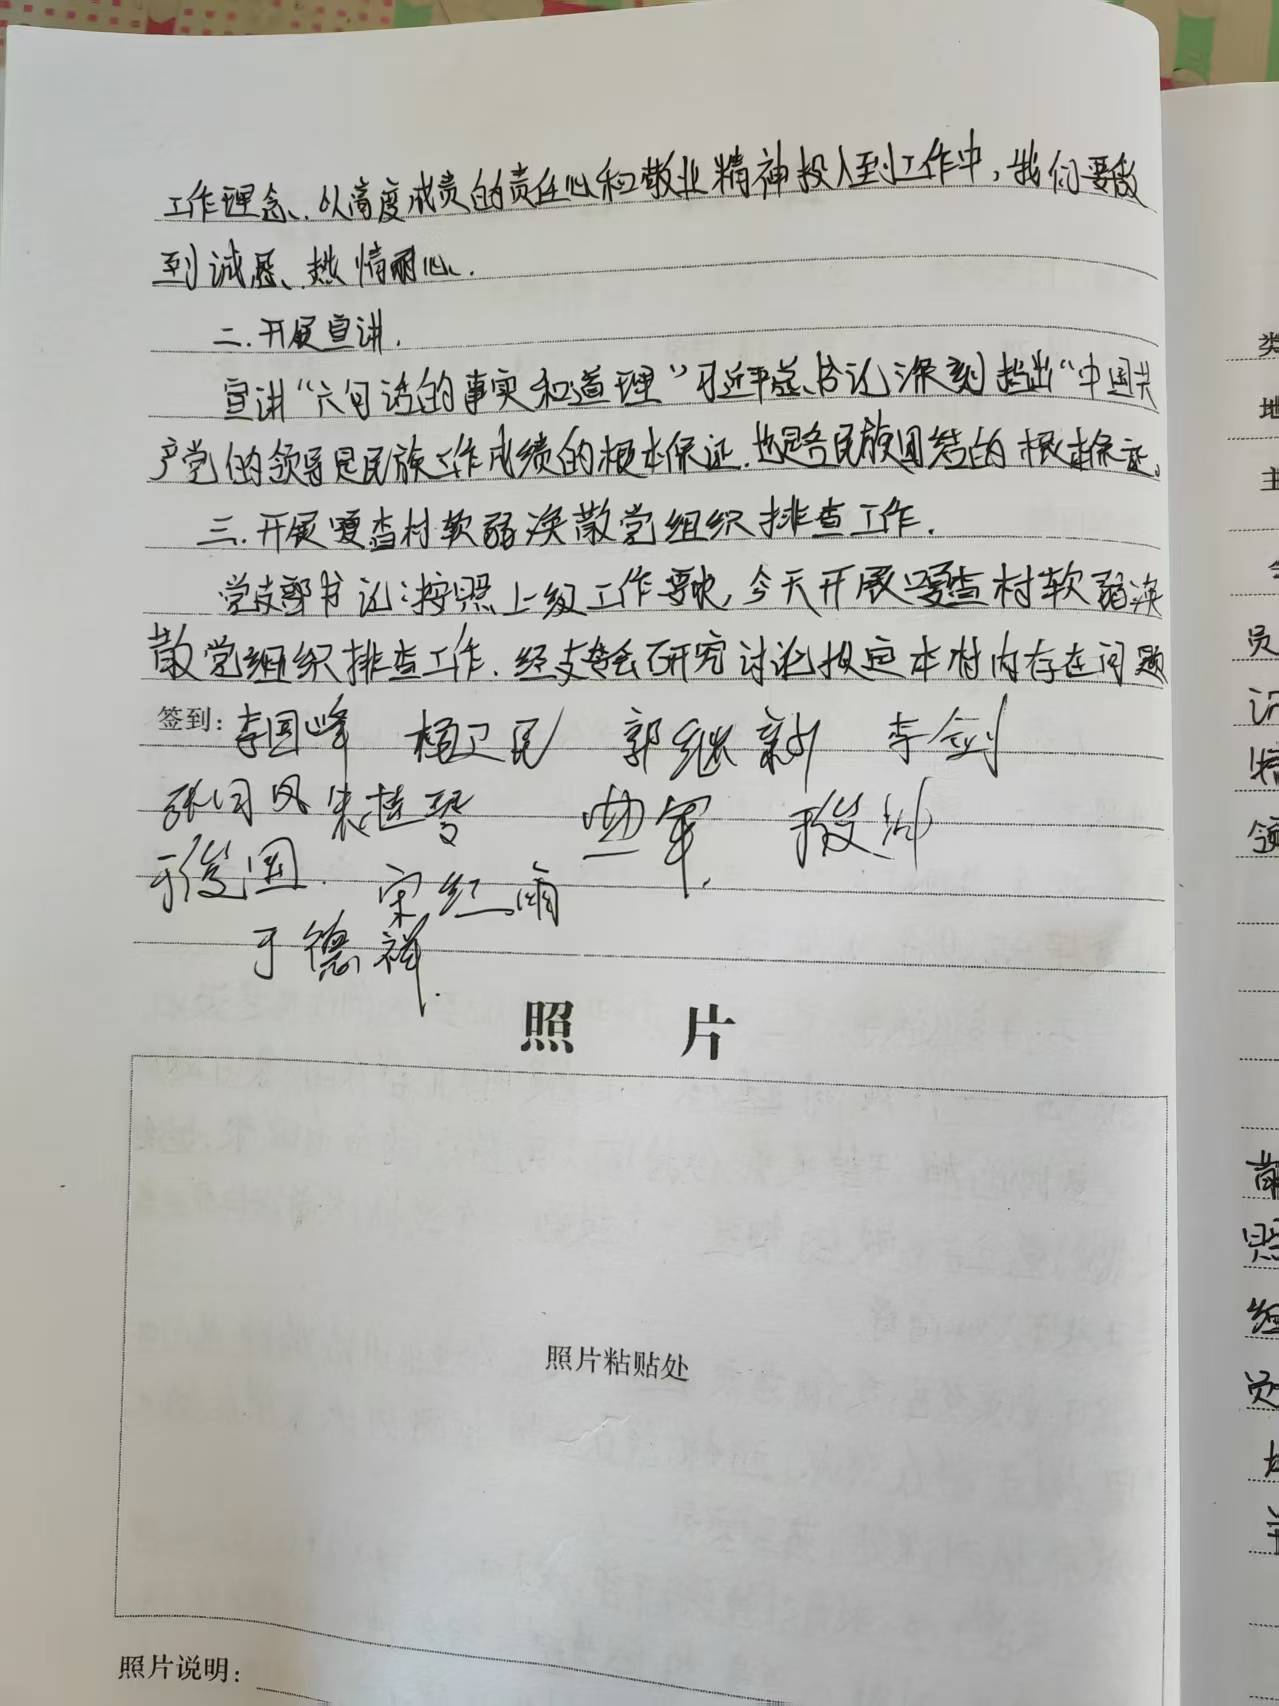 工作理念、以高度成责的责任心和敬业精神投入到工作中，我们要做
到诚恳、热情耐心.
二.开展宣讲.
宣讲“六句话的事实和道理”习近平总书记深刻指出“中国共
产党的领导是民族工作成绩的根本保证.也是各民族团结的根本保证。
三.开展嘎查村软弱涣散党组织排查工作.
党支部书记:按照上级工作要求,今天开展嘎查村软弱涣
散党组织排查工作.经支委会研究讨论拟定本村内存在问题
签到: 李国峰 杨卫民 郭继新 李剑
张闰凤 朱桂琴 典军 于俊帅
于俊国. 宋红雨
于德祥.
照 片
照片粘贴处
照片说明:
类
地
主
员
记
领
散
照
经
员